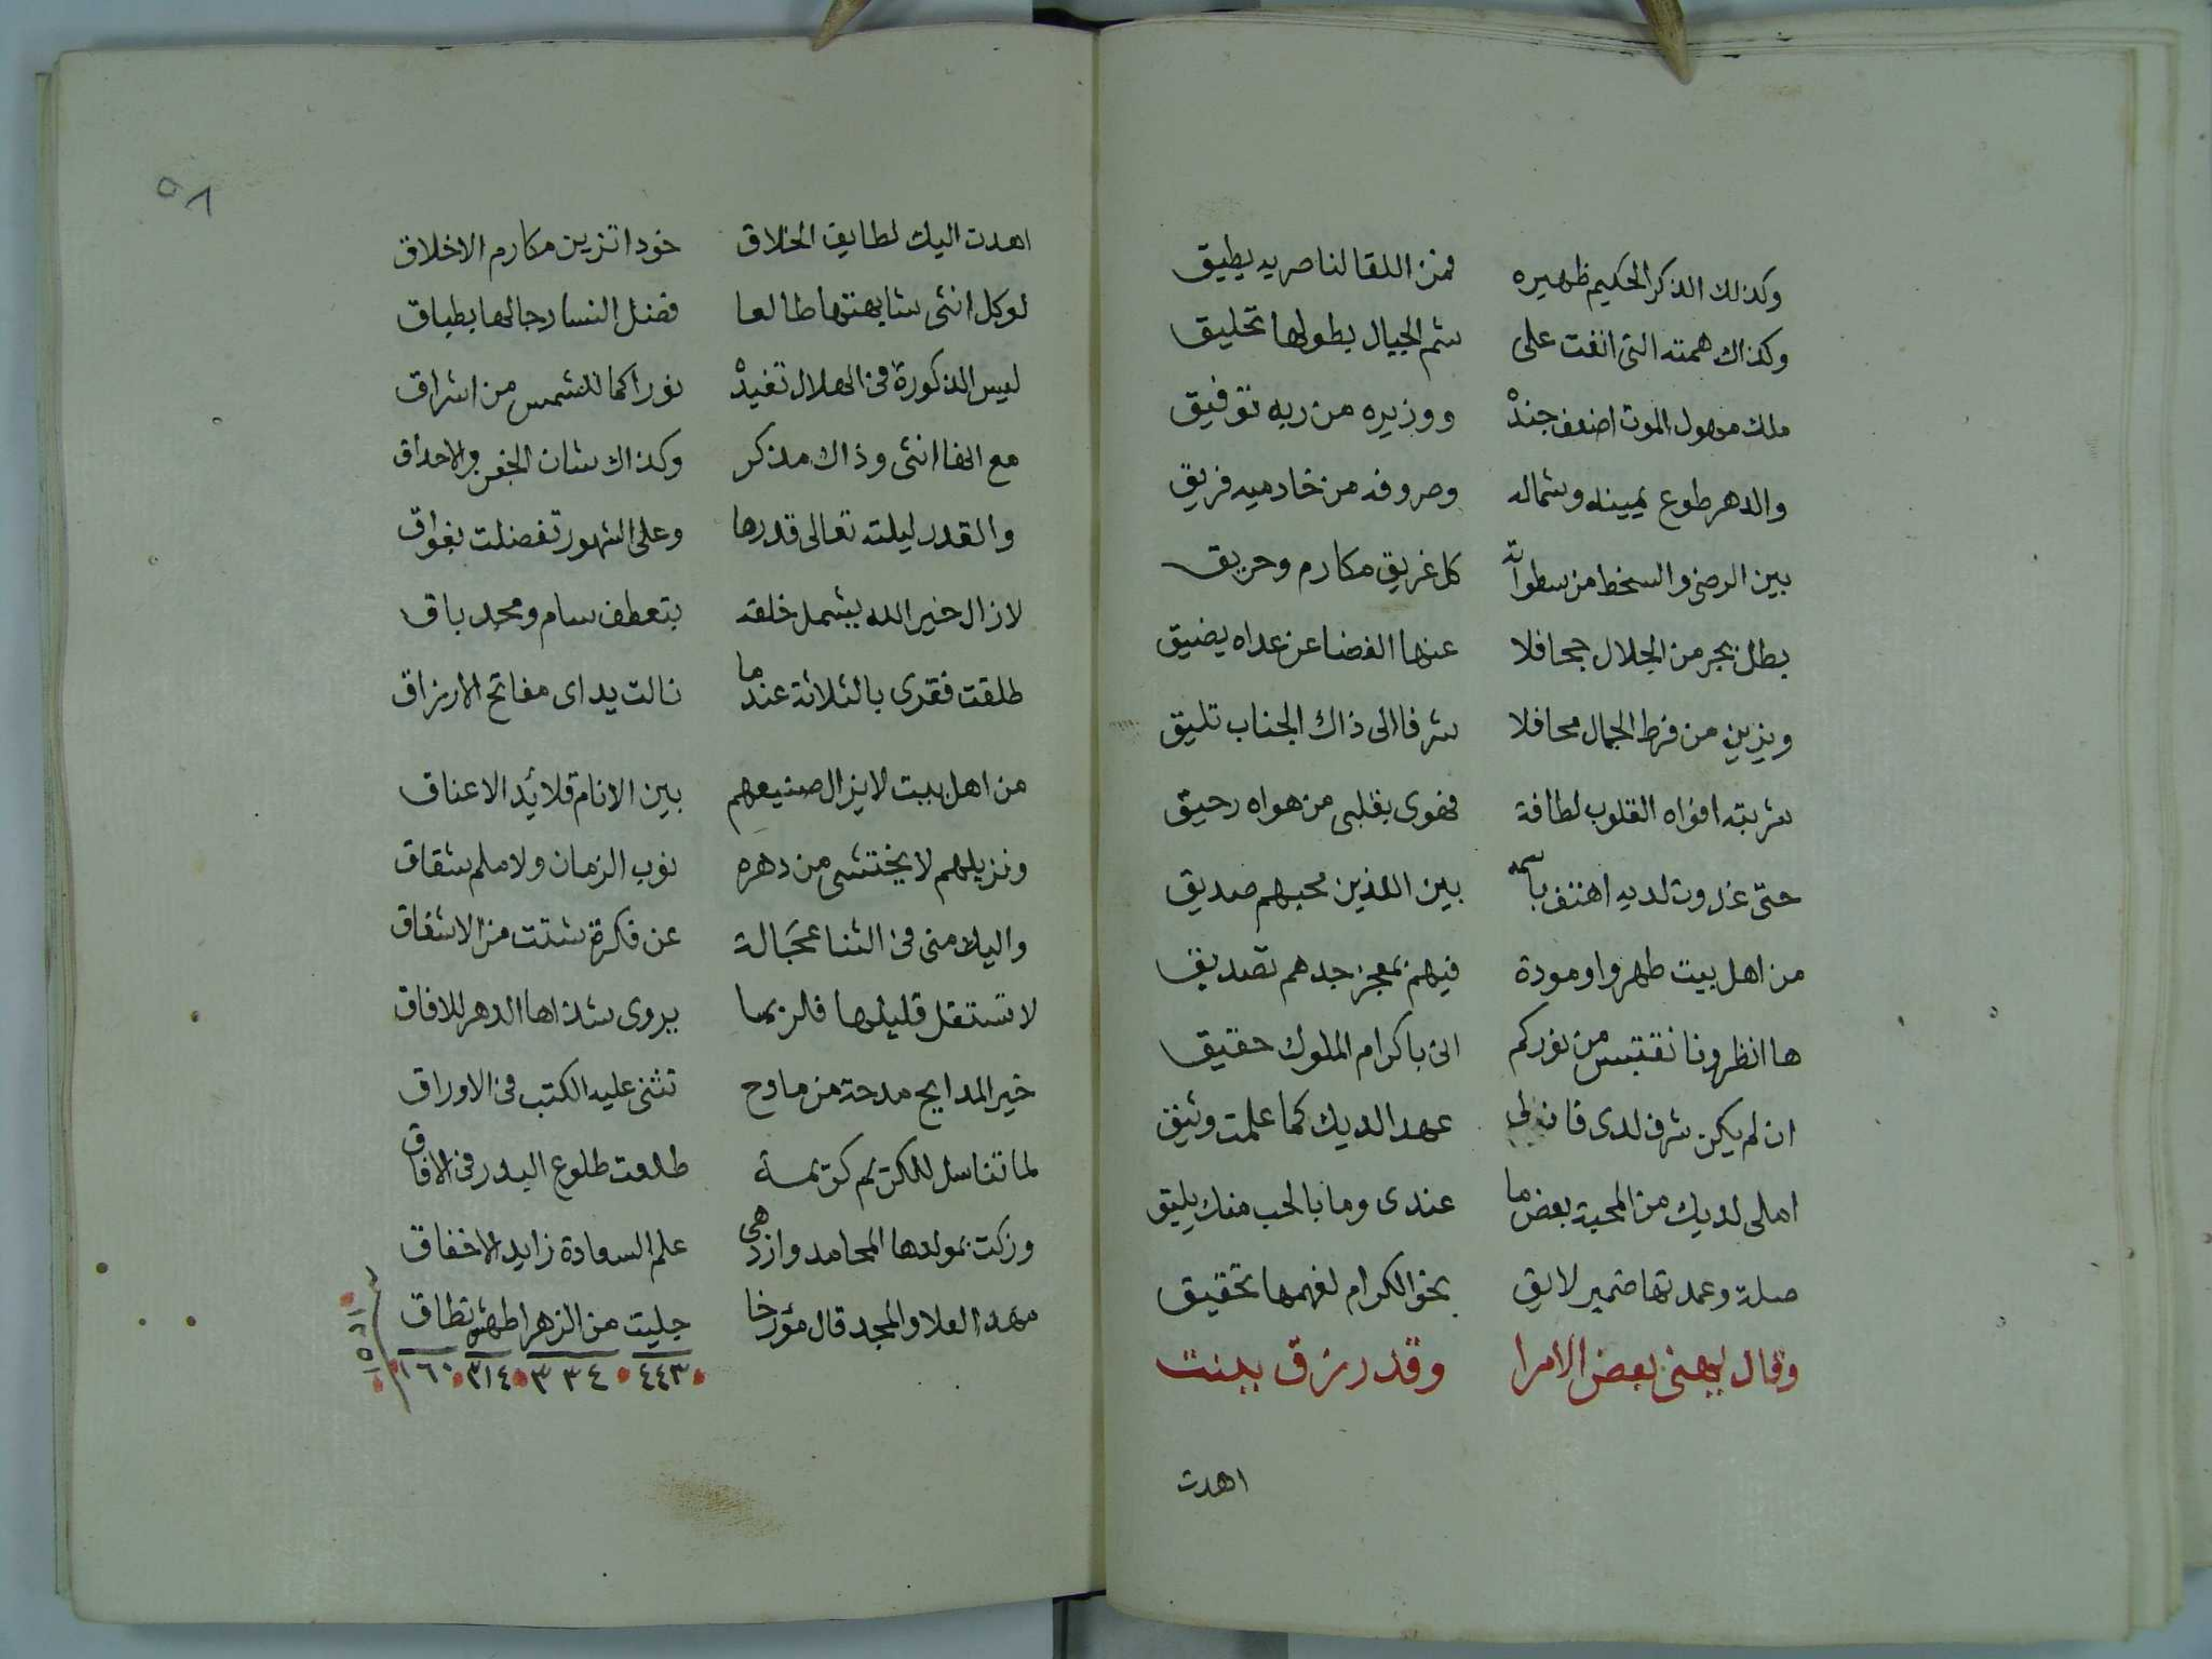 وكذلك الذكر الحكيم ظهيره فمن اللقا لناصريه يطيق
وكذاك همته التى انفت على شم الجبال بطولها تحليق
ملك مهول الموت اضعف جنده ووزيره من ربه توفيق
والدهر طوع يمينه وشماله وصروفه من خادميه فريق
بين الرضى والسخط من سطواته كل غريق مكارم وحريق
بطل يجر من الجلال جحافلا عنها الفضا عن عداه يضيق
ويزين من فرط الجمال محافلا شرفا الى ذاك الجناب تليق
شربته افواه القلوب لطافة فهوى بقلبى من هواه رحيق
حتى غدوت لديه اهتف باسمه بين الذين محبهم صديق
من اهل بيت طهروا ومودة فيهم بمعجز جدهم تصديق
ها انظرونا نقتبس من نوركم انى باكرام الملوك حقيق
ان لم يكن شرف لدى فان لى عهدا لديك كما علمت وثيق
املى لديك من المحبة بعض ما عندى وما بالحب منك يليق
صلة وعمدتها ضمير لايق بخو الكرام لفهمها تحقيق
وقال ليهنى بعض الامرا وقد رزق ببنت
اهدت
٥٨
اهدت اليك لطايف الخلاق خودا تزين مكارم الاخلاق
لو كل انثى شابهتها طالعا فضل النسا رجالها بطباق
ليس الذكورة فى الهلال تفيده نورا كما للشمس من اشراق
مع انها انثى وذاك مذكر وكذاك شان الجفن والاحداق
والقدر ليلته تعالى قدرها وعلى الشهور تفضلت بفواق
لازال خير الله يشمل خلقه بتعطف سام ومجد باق
طلقت فقرى بالثلاثة عندما نالت يداى مفاتح الارزاق
من اهل بيت لا يزال صنيعهم بين الانام قلائد الاعناق
ونزيلهم لا يختشى من دهره نوب الزمان ولا ملم شقاق
واليك منى فى الثنا عجالة عن فكرة شتت من الاشفاق
لا تستقل قليلها فلربما يروى شذاها الدهر للافاق
خير المدايح مدحة من مادح تثنى عليه الكتب فى الاوراق
لما تناسل للكريم كريمة طلعت طلوع البدر فى الافاق
وزكت بمولدها المحامد وازدهى علم السعادة زايد الاخفاق
مهد العلا والمجد قال مؤرخا جليت من الزهرا طهر نطاق
٤٤٣ ٣٣٤ ٣١٤ ١٦٠
١٢٥١